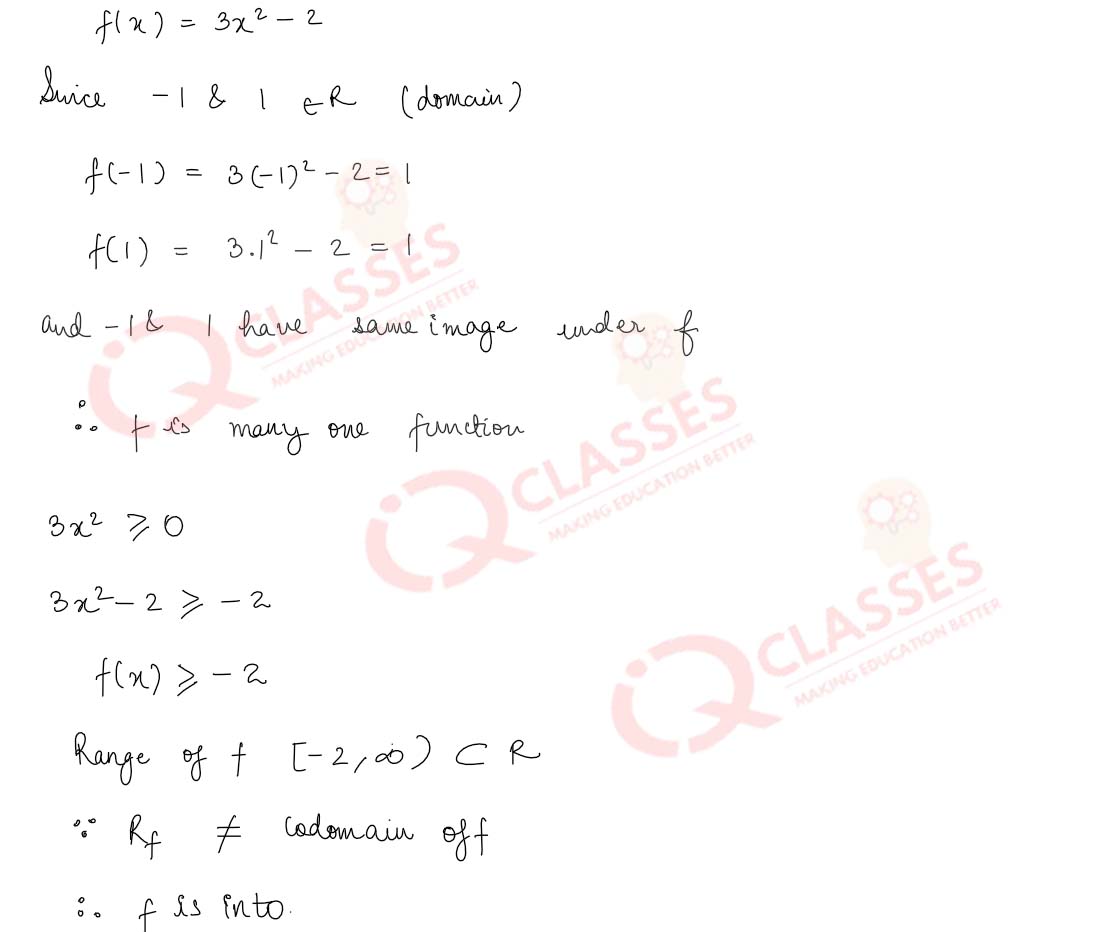 f(x) = 3x² - 2
Since -1 & 1 ∈ R (domain)
f(-1) = 3(-1)² - 2 = 1
f(1) = 3.1² - 2 = 1
and -1 & 1 have same image under f
∴ f is many one function
3x² ⩾ 0
3x² - 2 ⩾ -2
f(x) ⩾ -2
Range of f [-2, ∞) ⊂ R
∵ R_f ≠ codomain of f
∴ f is into.
iQ CLASSES
MAKING EDUCATION BETTER
iQ CLASSES
MAKING EDUCATION BETTER
iQ CLASSES
MAKING EDUCATION BETTER